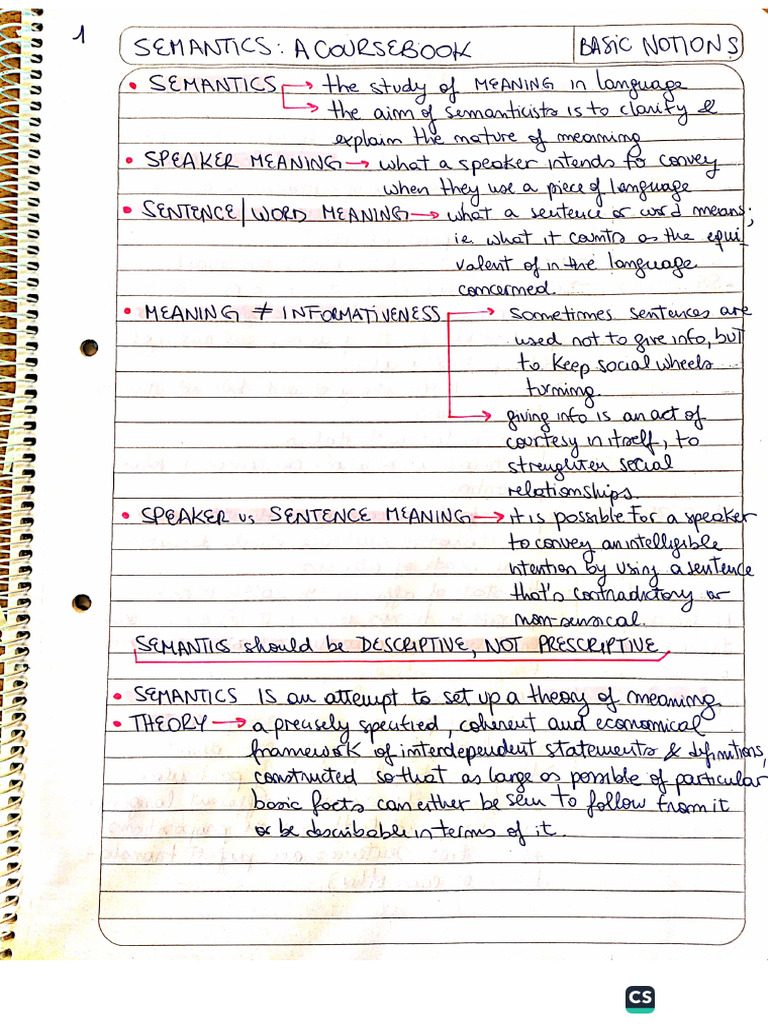 1
SEMANTICS: A COURSEBOOK
BASIC NOTIONS
• SEMANTICS → the study of MEANING in language
→ the aim of semanticists is to clarify &
explain the nature of meaning
• SPEAKER MEANING → what a speaker intends to convey
when they use a piece of language
• SENTENCE/WORD MEANING → what a sentence or word means;
i.e. what it counts as the equi
valent of in the language
concerned.
• MEANING ≠ INFORMATIVENESS → sometimes sentences are
used not to give info, but
to keep social wheels
turning.
→ giving info is an act of
courtesy in itself, to
strenghten social
relationships.
• SPEAKER vs SENTENCE MEANING → it is possible for a speaker
to convey an intelligible
intention by using a sentence
that's contradictory or
non-sensical.
SEMANTICS should be DESCRIPTIVE, NOT PRESCRIPTIVE
• SEMANTICS IS an attempt to set up a theory of meaning.
• THEORY → a precisely specified, coherent and economical
framework of interdependent statements & definitions,
constructed so that as large as possible of particular
basic facts can either be seen to follow from it
or be describable in terms of it.
CS